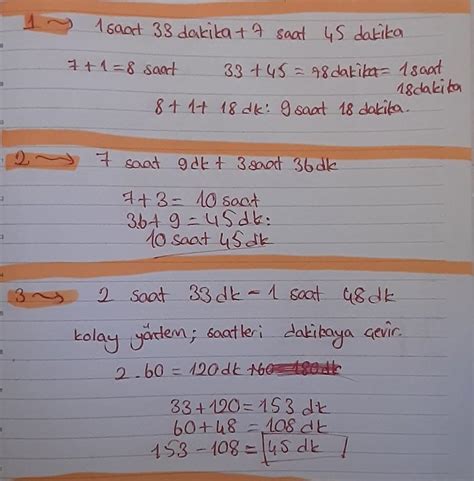 1 → 1 saat 33 dakika + 7 saat 45 dakika
7+1=8 saat 33 + 45 = 78 dakika = 1 saat
18 dakika
8 + 1 + 18 dk : 9 saat 18 dakika.
2 → 7 saat 9 dk + 3 saat 36 dk
7+3 = 10 saat
36 + 9 = 45 dk :
10 saat 45 dk
3 → 2 saat 33 dk - 1 saat 48 dk
kolay yöntem; saatleri dakikaya çevir.
2.60 = 120 dk
33 + 120 = 153 dk
60 + 48 = 108 dk
153 - 108 = 45 dk